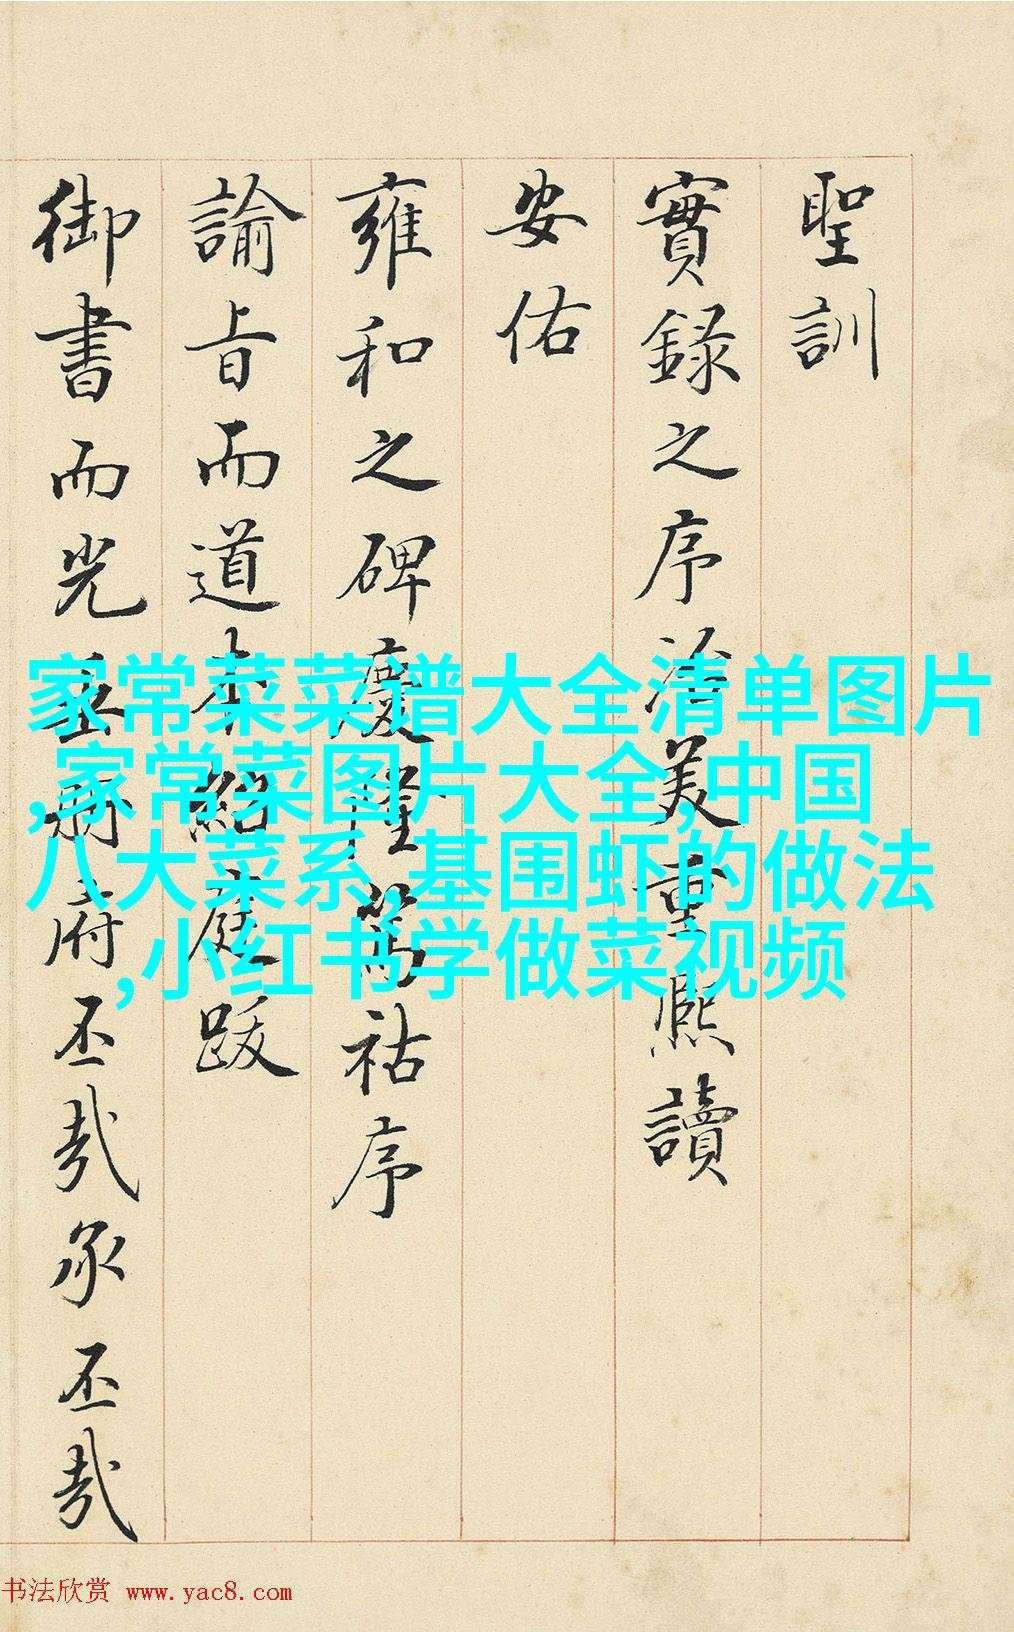 聖訓
實錄之序洽美重熙讀
安佑
雍和之碑慶隆篤祜序
諭旨而道本紹庭跋
御書而光垂府丕哉承丕哉
家常菜菜谱大全清单图片
,家常菜图片大全,中国
八大菜系,基围虾的做法
,小红书学做菜视频
书法欣赏 www.yac8.com